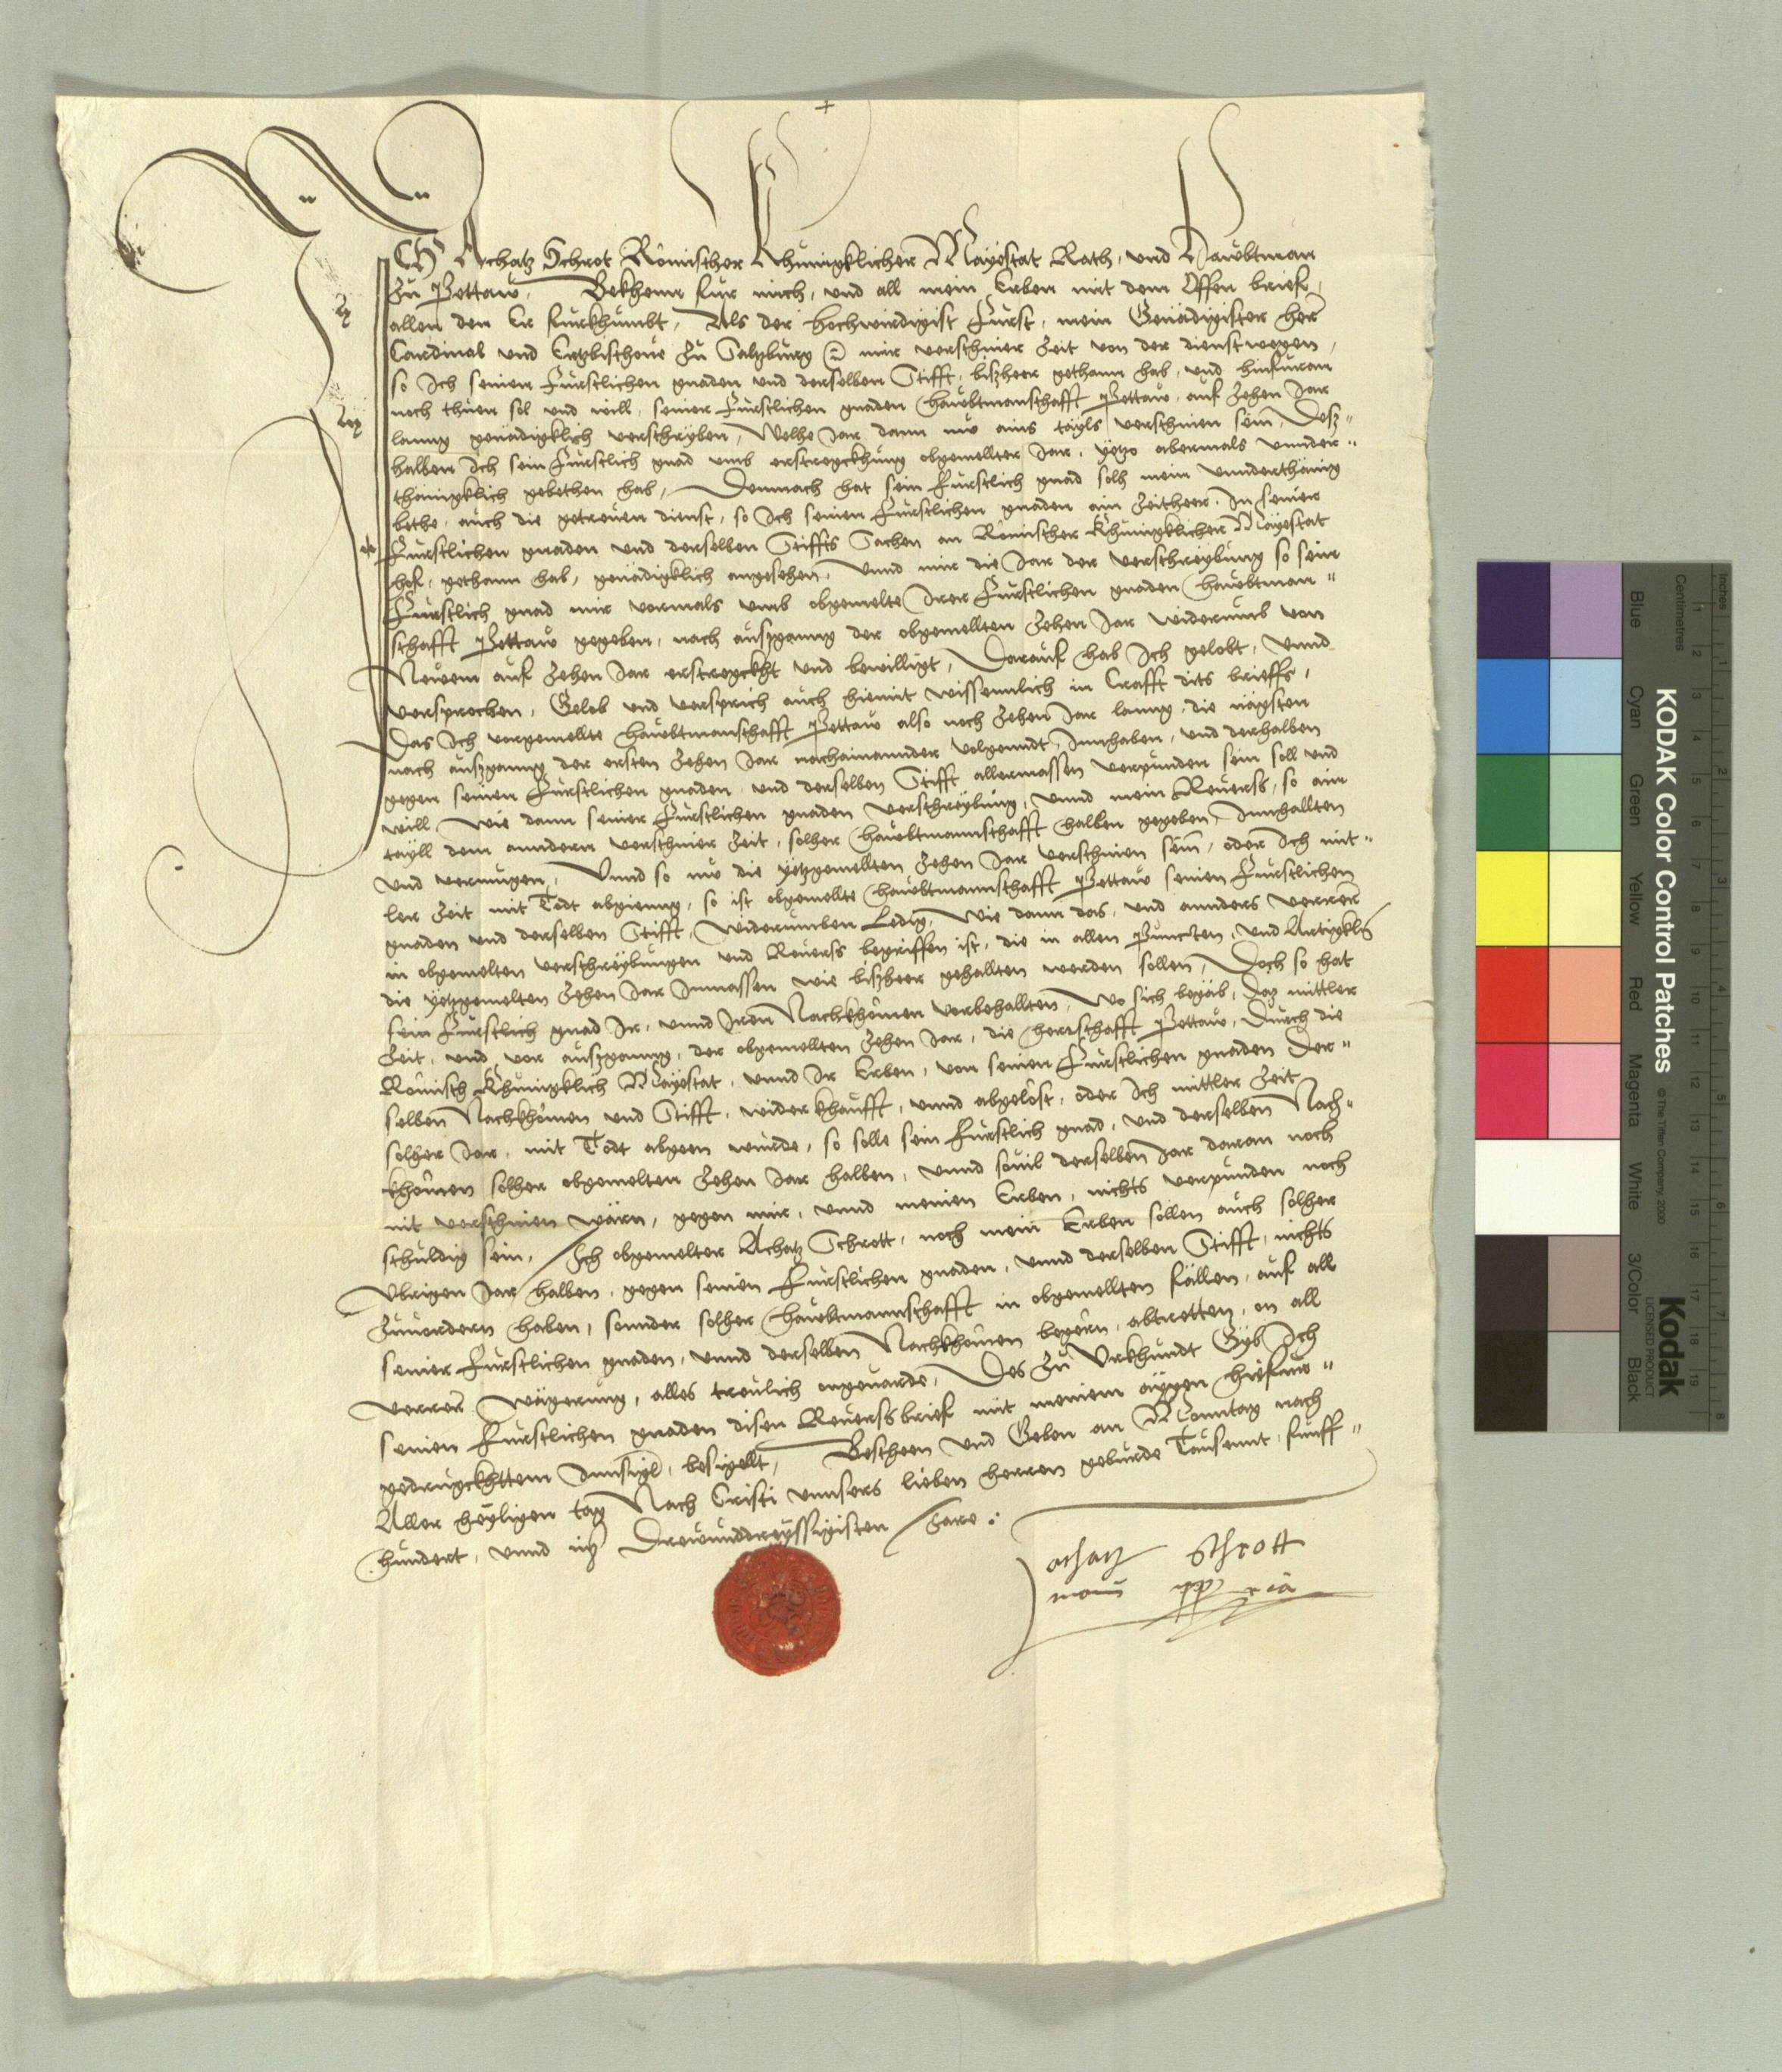 ICH Achatz Schrot Römischer Khunigklicher Mayestat Rath, und Haubtman
zu Pettaw, Bekhenn fur mich, und all mein Erben mit dem Offen brief,
allen den Er furkhumbt, Als der hochwirdigist Furst, mein Genädigister her
Cardinal und Ertzbischove zu Saltzburg mir verschiner zeit von der dienst wegen,
so Ich seinen Furstlichen gnaden und derselben Stifft, bißheer gethann hab, und hinfuran
noch thuen sol und will, seiner Furstlichen gnaden haubtmanschafft Pettaw, auf zehen Jar
lanng genädigklich verschryben, Welhe Jar dann nw ains tayls verschinen sein, Deß"
halben Ich sein Furstlich gnad umb erstregckhung obgemellter Jar, yetzo abermals unnder"
thänigklich gebethen hab, Demnach hat sein Furstlich gnad solh mein unnderthänig
bethe, auch die getreuen dienst, so Ich seinen Furstlichen gnaden ain Zeitheer, In seiner
Furstlichen gnaden und derselben Stiffts Sachen an Römischer Khunigklicher Mayestat
hof, gethann hab, genädigklich angesehen, Unnd mir die Jar der verschreybung so sein
Furstlich gnad mir vormals umb obgemelte Irer Furstlichen gnaden haubtman"
schafft Pettaw gegeben, nach außganng der obgemellten zehen Jar widerumb von
Neuem auf zehen Jar erstregckht und bewilligt, Darauf hab Ich gelobt, unnd
versprochen, Gelob und versprich auch hiemit wissennlich in Crafft dits brieffs,
Das Ich vorgemellte haubtmanschafft Pettaw also noch zehen Jar lanng, die nägsten
nach außganng der ersten zehen Jar nacheinannder volgenndt, Innhaben, und derhalben
gegen seinen Furstlichen gnaden, und derselben Stifft allermassen verpunden sein soll und
will, Wie dann seiner Furstlichen gnaden verschreybung, unnd mein Reverss, so ain
tayll dem anndern verschiner Zeit, solher haubtmannschafft halben gegeben, Innhallten
und vermugen, Unnd so nw die yetzgemellten zehen Jar verschinen sein, oder Ich mit"
ler Zeit mit Todt abgienng, so ist obgemellte haubtmannschafft Pettaw seinen Furstlichen
gnaden und derselben Stifft, Widerumben Ledig, Wie dann das, und annders verrer
in obgemelten verschreybungen und Reverss begriffen ist, die in allen Puncten, und Artigkln
die yetzgemelten zehen Jar Inmassen wie bißheer gehallten werden sollen, Doch so hat
sein Furstlich gnad Ir, unnd Iren Nachkhomen vorbehallten, Wo sich begäb, Daz mittler
Zeit, und vor außganng, der obgemellten zehen Jar, die herrschafft Pettaw, durch die
Römisch Khunigklich Mayestat, unnd Ir Erben, von seinen Furstlichen gnaden der"
selben Nachkhomen und Stifft, widerkhaufft, unnd abgelöst, oder Ich mittler Zeit
solher Jar, mit Todt abgeen wurde, so solle sein Furstlich gnad, und derselben Nach"
khomen solher obgemelten zehen Jar halben, unnd sovil derselben Jar daran noch
nit verschinen wärn, gegen mir, unnd meinen Erben, nichts verpunden noch
schuldig sein, Ich obgemelter Achatz Schrott, noch mein Erben sollen auch solher
Ubrigen Jar halben, gegen seinen Furstlichen gnaden, unnd derselben Stifft, nichts
zuvordern haben, sonnder solher haubtmannschafft in obgemellten fällen, auf all
seiner Furstlichen gnaden, unnd derselben Nachkhomen begern, abtretten, on all
verrer wägerung, alles treulich ongevarde, Des zu Urkhundt Gyb Ich
seinen Furstlichen gnaden disen Reverssbrief mit meinem aygen hiefuer"
gedrugckhttem Innsigl, besigellt, Bescheen und Geben an Monntag nach
Aller heyligen tag Nach Cristi unnsers lieben herren geburde Tausennt, funff"
hundert, unnd im Drewunddreyssigisten Jare.
achatz schrott
manu ppria